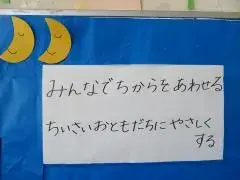 みんなでちからをあわせる
ちいさいおともだちにやさしく
する